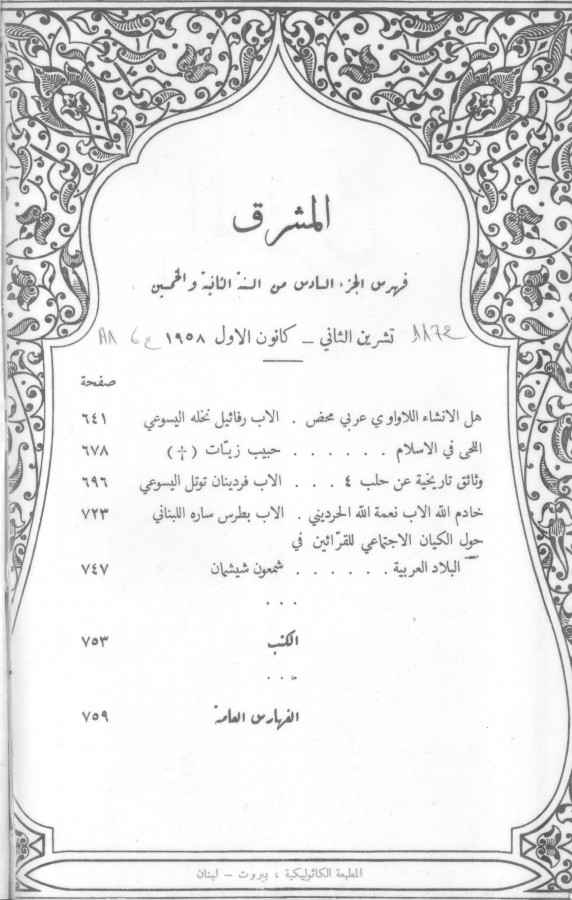 المشرق
فهرس الجزء السادس من السنة الثانية والخمسين
تشرين الثاني – كانون الاول ١٩٥٨
صفحة
هل الانشاء اللاواوي عربي محض . الاب رفائيل نخله اليسوعي ٦٤١
اللحى في الاسلام . . . . . . حبيب زيّات (†) ٦٧٨
وثائق تاريخية عن حلب ٤ . . . الاب فردينان توتل اليسوعي ٦٩٦
خادم الله الاب نعمة الله الحرديني . الاب بطرس ساره اللبناني ٧٢٣
حول الكيان الاجتماعي للقرّائين في
البلاد العربية . . . . . . شمعون شيشمان ٧٤٧
. . .
الكتب ٧٥٣
. . .
الفهارس العامة ٧٥٩
المطبعة الكاثوليكية ، بيروت – لبنان